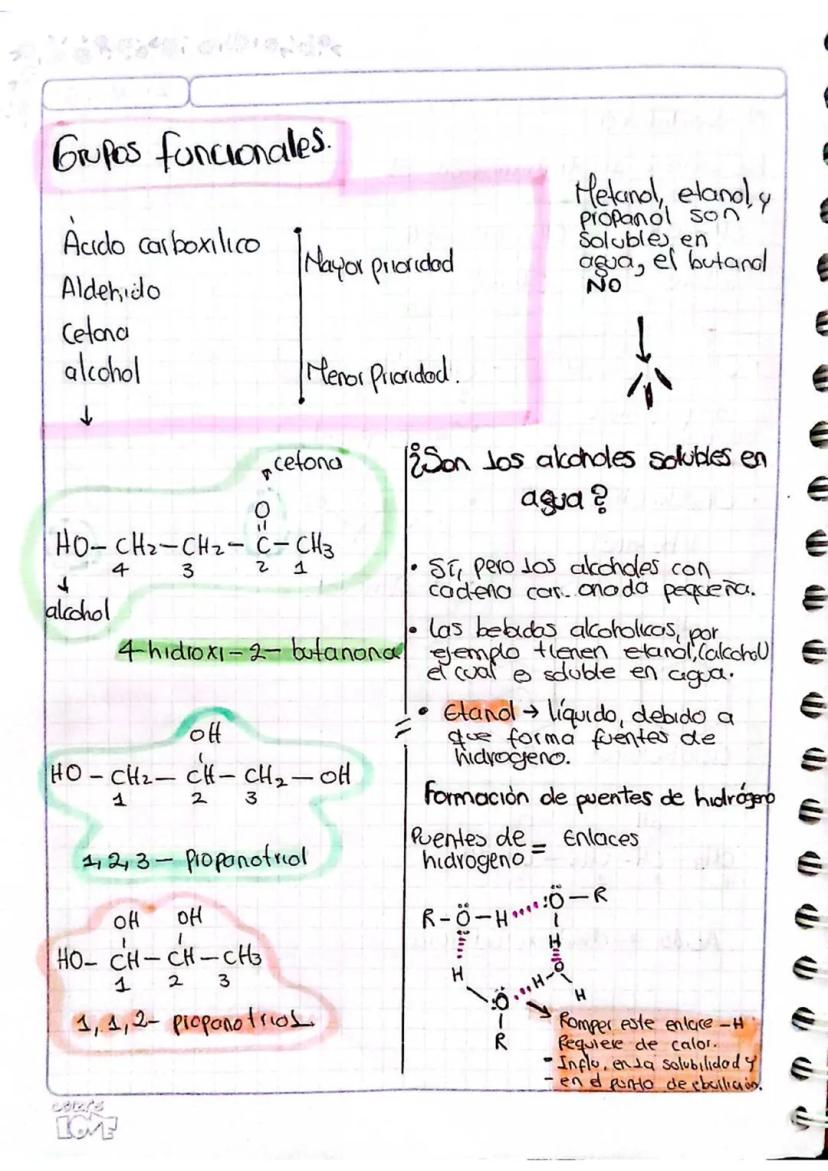 Grupos funcionales.
Ácido carboxilico
Aldehido
Cetona
alcohol
↓
Mayor prioridad
Menor Prioridad.
Metanol, etanol, y
propanol son
solubles en
agua, el butanol
NO
cetona
O
HO- CH2-CH2-C-CH3
4 3 2 1
alcohol
4-hidroxi-2-butanona
OH
HO-CH2-CH-CH2-OH
1 2 3
1,2,3-Propanotriol
OH OH
HO-CH-CH-CH3
1 2 3
1,1,2-propanotriol
¿Son los alcoholes solubles en
agua?
• Sí, pero los alcoholes con
cadena car onada pequeña.
• Las bebidas alcoholicas, por
ejemplo tienen etanol, (alcohol)
el cual es soluble en agua.
• Etanol → líquido, debido a
que forma fuentes de
hidrogeno.
Formación de puentes de hidrógeno
Puentes de = Enlaces
hidrogeno
R-O-H O-R
H
H H-O
O H
R
Romper este enlace -H
Requiere de calor.
- Influ, en la solubilidad y
- en el punto de ebullición.
LOVE